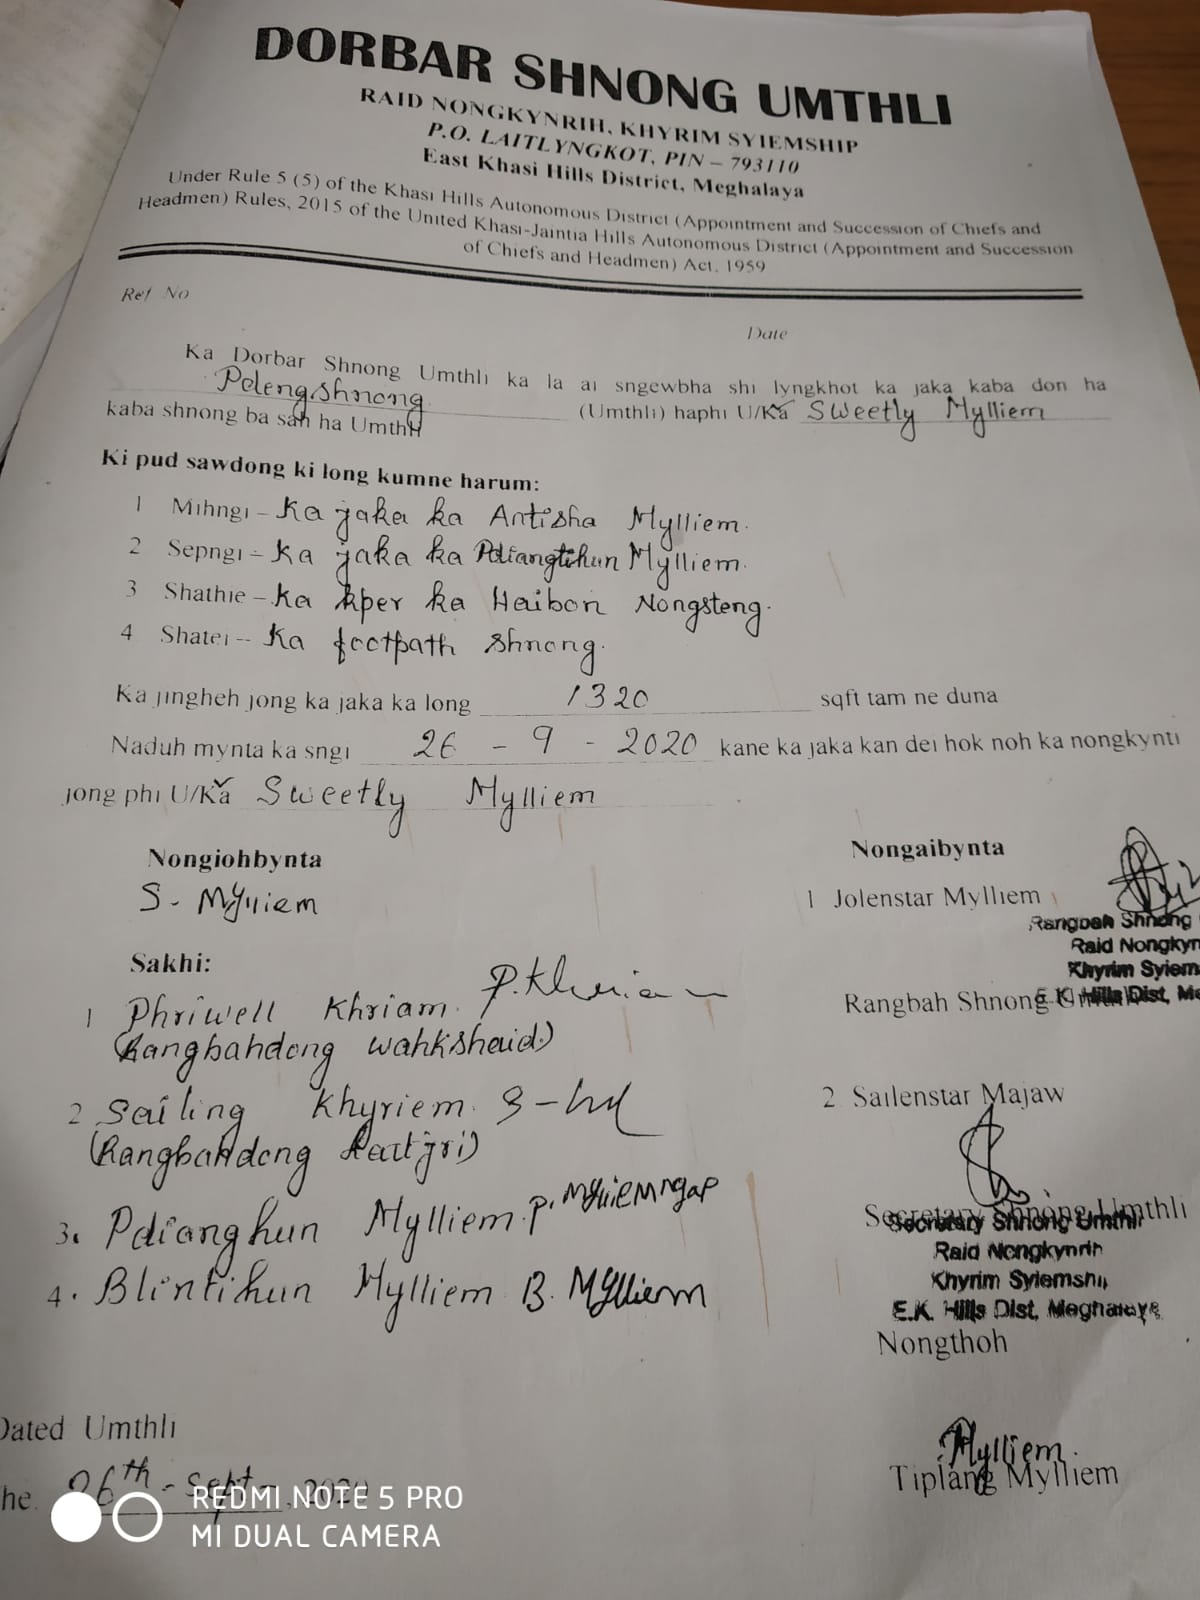 DORBAR SHNONG UMTHLI
RAID NONGKYNRIH, KHYRIM SYIEMSHIP
P.O. LAITLYNGKOT, PIN – 793110
East Khasi Hills District, Meghalaya
Under Rule 5 (5) of the Khasi Hills Autonomous District (Appointment and Succession of Chiefs and
Headmen) Rules, 2015 of the United Khasi-Jaintia Hills Autonomous District (Appointment and Succession
of Chiefs and Headmen) Act, 1959
Ref No
Date
Ka Dorbar Shnong Umthli ka la ai sngewbha shi lyngkhot ka jaka kaba don ha
Polengshnong (Umthli) haphi U/Ka Sweetly Mylliem
kaba shnong ba sah ha Umthli
Ki pud sawdong ki long kumne harum:
1 Mihngi – Ka jaka ka Antisha Mylliem.
2 Sepngi – Ka jaka ka Pdiangtihun Mylliem.
3 Shathie – Ka kper ka Haibon Nongsteng.
4 Shatei -- Ka footpath shnong.
Ka jingheh jong ka jaka ka long 1320 sqft tam ne duna
Naduh mynta ka sngi 26 - 9 - 2020 kane ka jaka kan dei hok noh ka nongkynti
jong phi U/Ka Sweetly Mylliem
Nongiohbynta
S. Mylliem
Nongaibynta
1 Jolenstar Mylliem
Rangbah Shnong
Raid Nongkyn
Khyrim Syiem
E.K. Hills Dist, Me
Rangbah Shnong
Sakhi:
1 Phriwell Khriam. P.Khriam
(Rangbahdong Wahkshaid)
2 Sailing Khyriem.
(Rangbahdong
3. Pdianghun Mylliem. P. Mylliemngap
4. Blintihun Mylliem B. Mylliem
2 Sailenstar Majaw
Secretary Shnong Umthli
Secretary Shnong Umthli
Raid Nongkynrih
Khyrim Syiemship
E.K. Hills Dist, Meghalaya
Nongthoh
Mylliem.
Tiplang Mylliem
Dated Umthli
he. 26th - Sept -, 2020
REDMI NOTE 5 PRO
MI DUAL CAMERA